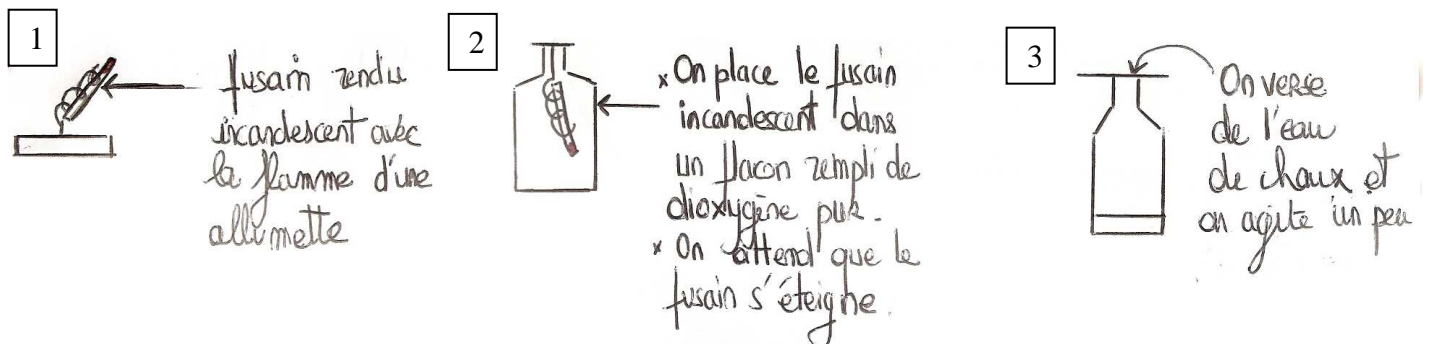 1
fusain rendu
incandescent avec
la flamme d'une
allumette
2
x On place le fusain
incandescent dans
un flacon rempli de
dioxygène pur.
x On attend que le
fusain s'éteigne.
3
On verse
de l'eau
de chaux et
on agite un peu